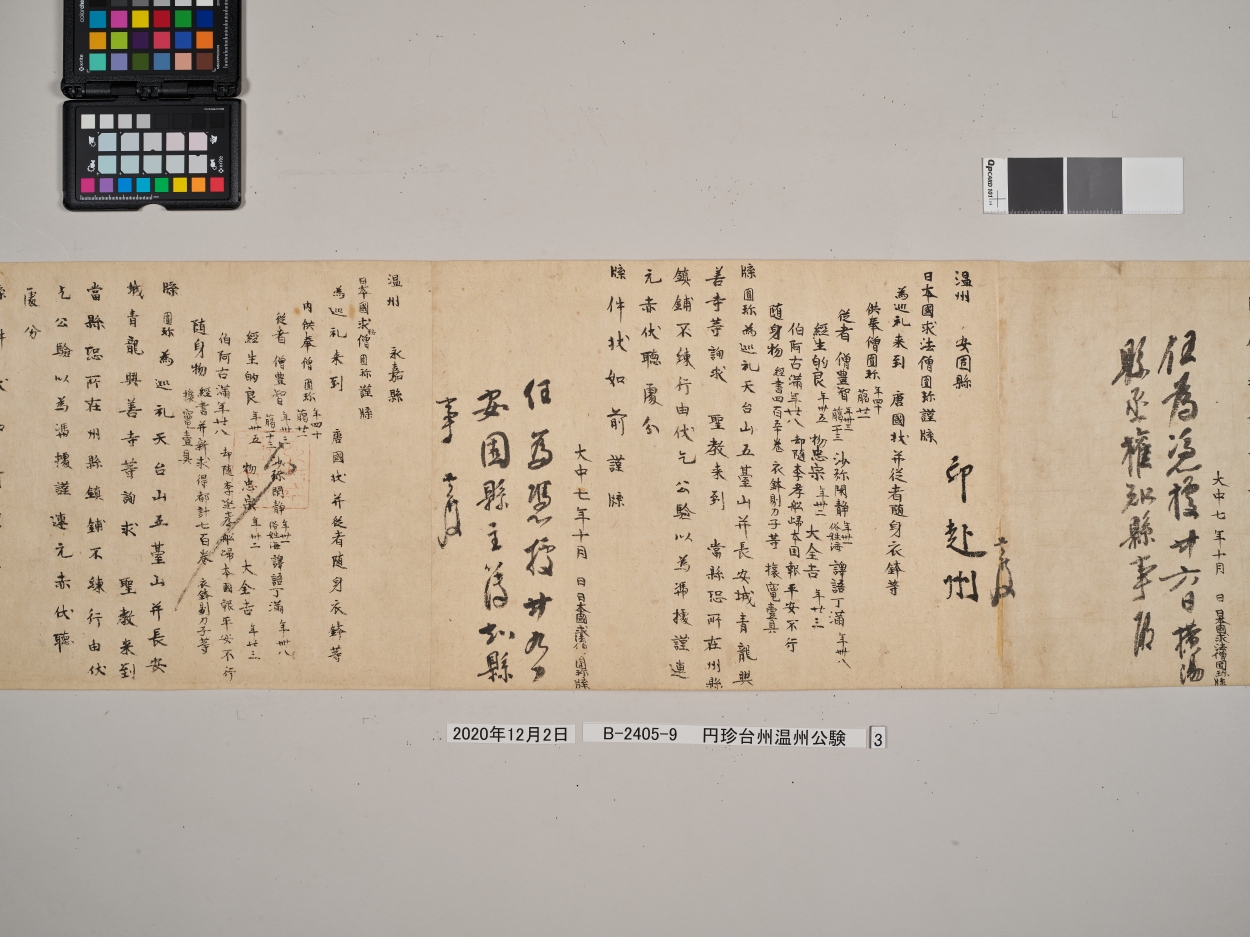 大中七年十月 日 日本國求法僧圓珎牒
任為憑據廿六日橫陽
縣丞權知縣事
温州 安固縣 印赴州
日本國求法僧圓珎謹牒
為巡礼来到 唐國状并従者随身衣鉢等
供奉僧圓珎 年四十 臈廿一
従者 僧豊智 年卅三 臈十三 沙弥閑静 年卅一 俗姓海 譯語丁滿 年卌八
経生的良 年卅五 物忠宗 年卅二 大全吉 年廿三
伯阿古滿 年廿八 却随李孝舩歸本國報平安不行
随身物 経書四百五十卷 衣鉢剔刀子等 櫎竃壹具
牒圓珎為巡礼天台山五臺山并長安城青龍興
善寺等詢求 聖教来到 當縣恐所在州縣
鎮鋪不練行由伏乞公驗以為馮據謹連
元赤伏聴處分
牒件状如前謹牒
大中七年十月 日 日本國求法僧圓珎牒
任為憑據廿九日
安固縣主簿知縣
事
温州 永嘉縣
日本國求法僧圓珎謹牒
為巡礼来到 唐國状并従者随身衣鉢等
内供奉僧圓珎 年四十 臈廿一
従者 僧豊智 年卅三 臈十三 沙弥閑静 年卅一 俗姓海 譯語丁滿 年卌八
経生的良 年卅五 物忠宗 年卅二 大全吉 年廿三
伯阿古滿 年廿八 却随李延孝舩歸本國報平安不行
随身物 経書并新求得都計七百卷 衣鉢剔刀子等 櫎竃壹具
牒圓珎為巡礼天台山五臺山并長安
城青龍興善寺等詢求 聖教来到
當縣恐所在州縣鎮鋪不練行由伏
乞公驗以為馮據謹連元赤伏聴
處分
2020年12月2日 B-2405-9 円珍台州温州公験 3
QPCARD 101